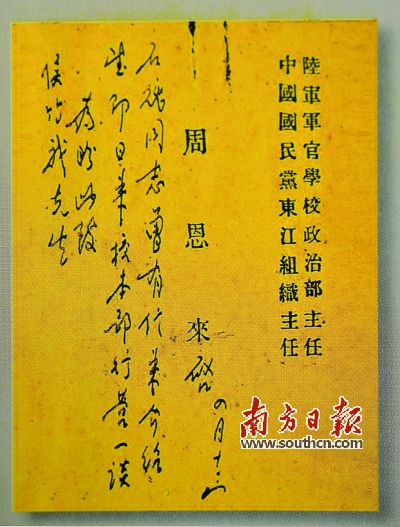 陸軍軍官學校政治部主任
中國國民黨東江組織主任
周恩來啓 四月十
同志曾有信來介紹
望即日來校本部行營一談
為盼此致
侯先生
南方日報
www.southcn.com